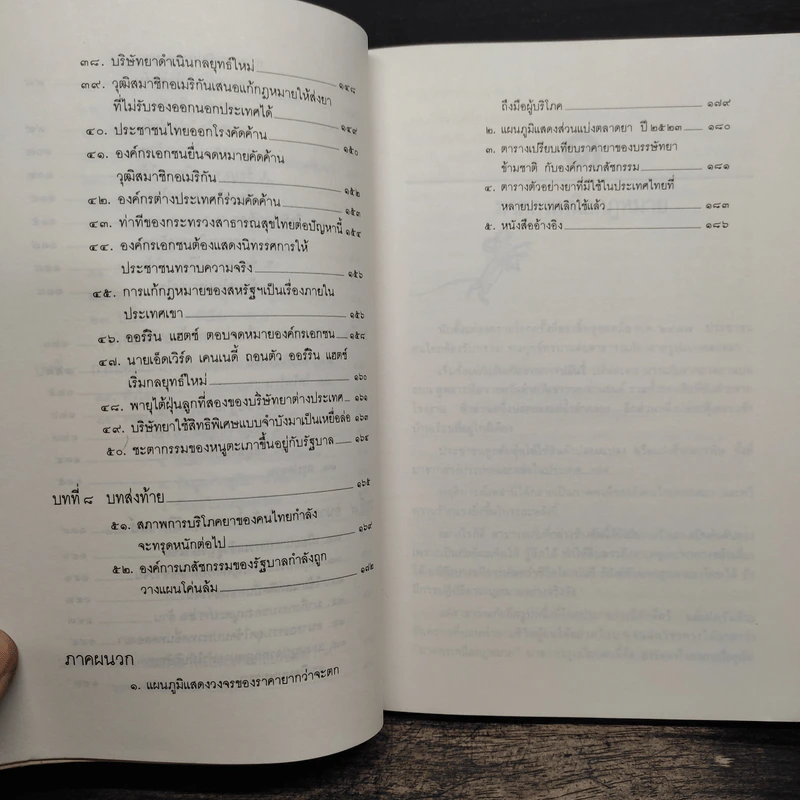 ๓๘. บริษัทยาดำเนินกลยุทธ์ใหม่ ๑๔๘
๓๙. วุฒิสมาชิกอเมริกันเสนอแก้กฎหมายให้ส่งยา
ที่ไม่รับรองออกนอกประเทศได้ ๑๔๙
๔๐. ประชาชนไทยออกโรงคัดค้าน ๑๕๐
๔๑. องค์กรเอกชนยื่นจดหมายคัดค้าน
วุฒิสมาชิกอเมริกัน ๑๕๒
๔๒. องค์กรต่างประเทศก็ร่วมคัดค้าน ๑๕๓
๔๓. ท่าทีของกระทรวงสาธารณสุขไทยต่อปัญหานี้ ๑๕๔
๔๔. องค์กรเอกชนต้องแสดงนิทรรศการให้
ประชาชนทราบความจริง ๑๕๖
๔๕. การแก้กฎหมายของสหรัฐฯเป็นเรื่องภายใน
ประเทศเขา ๑๕๖
๔๖. ออร์ริน แฮตช์ ตอบจดหมายองค์กรเอกชน ๑๕๘
๔๗. นายเอ็ดเวิร์ด เคนเนดี้ ถอนตัว ออร์ริน แฮตช์
เริ่มกลยุทธ์ใหม่ ๑๖๐
๔๘. พายุไต้ฝุ่นลูกที่สองของบริษัทยาต่างประเทศ ๑๖๑
๔๙. บริษัทยาใช้สิทธิพิเศษแบบจำบังมาเป็นเหยื่อล่อ ๑๖๓
๕๐. ชะตากรรมของหนูตะเภาขึ้นอยู่กับรัฐบาล ๑๖๔
บทที่ ๘ บทส่งท้าย ๑๖๕
๕๑. สภาพการบริโภคยาของคนไทยกำลัง
จะทรุดหนักต่อไป ๑๖๙
๕๒. องค์การเภสัชกรรมของรัฐบาลกำลังถูก
วางแผนโค่นล้ม ๑๗๒
ภาคผนวก
๑. แผนภูมิแสดงวงจรของราคายากว่าจะตก
ถึงมือผู้บริโภค ๑๗๙
๒. แผนภูมิแสดงส่วนแบ่งตลาดยา ปี ๒๕๒๓ ๑๘๐
๓. ตารางเปรียบเทียบราคายาของบรรษัทยา
ข้ามชาติ กับองค์การเภสัชกรรม ๑๘๑
๔. ตารางตัวอย่างยาที่มีใช้ในประเทศไทยที่
หลายประเทศเลิกใช้แล้ว ๑๘๓
๕. หนังสืออ้างอิง ๑๘๖